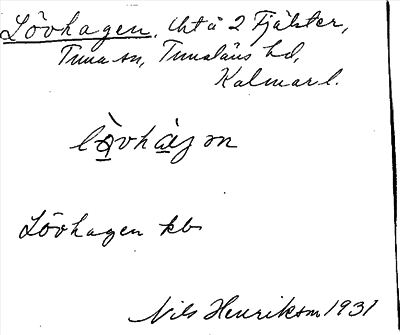 Lövhagen, lht å 2 Fjälster,
Tuna sn, Tunaläns hd,
Kalmar l.
lövhagən
Lövhagen kb
Nils Henrikson 1931